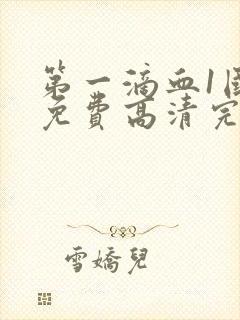 第一滴血1
免费高清完
雪嬌兒